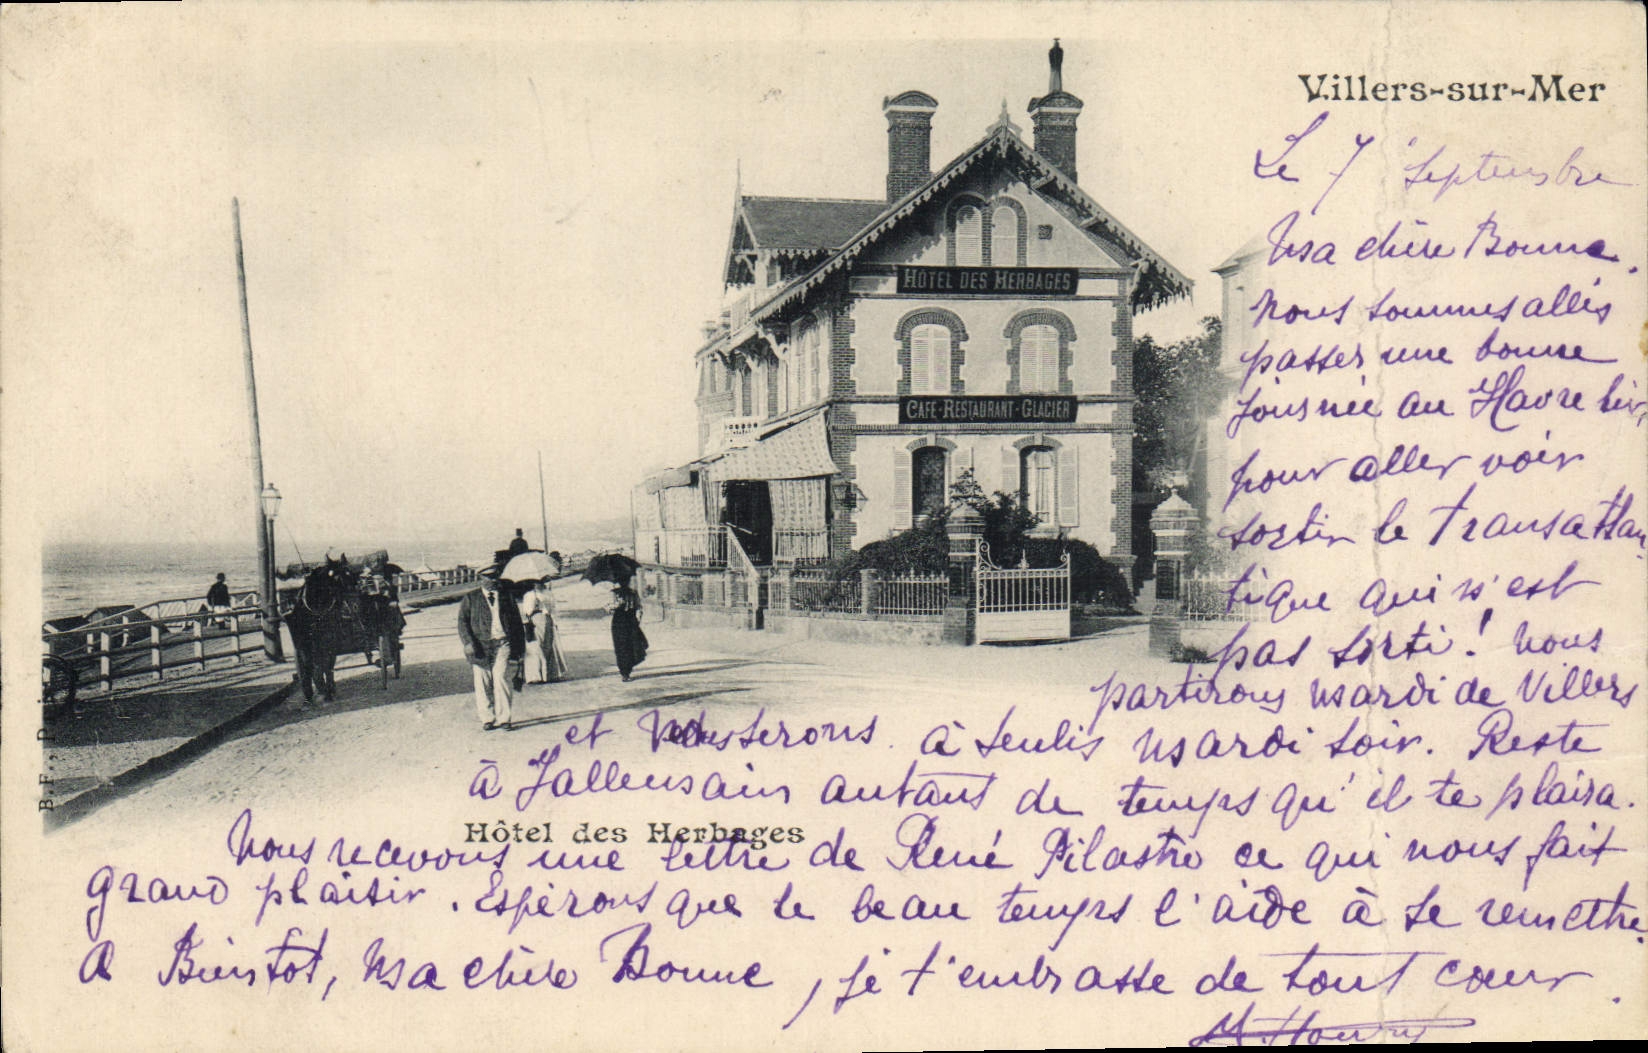 Villers-sur-Mer
Le 7 Septembre
Ma chère Bonne,
Nous sommes allés
passer une bonne
journée au Havre hier,
pour aller voir
sortir le transatlan-
tique qui n'est
pas sorti! Nous
partirons mardi de Villers
et serons à Senlis mardi soir. Reste
à autant de temps qu'il te plaira.
Nous recevons une lettre de René Pilastre ce qui nous fait
grand plaisir. Espérons que le beau temps l'aide à se remettre.
A Bientôt, Ma chère Bonne, je t'embrasse de tout cœur.
HÔTEL DES HERBAGES
CAFÉ-RESTAURANT-GLACIER
Hôtel des Herbages
B.F., P